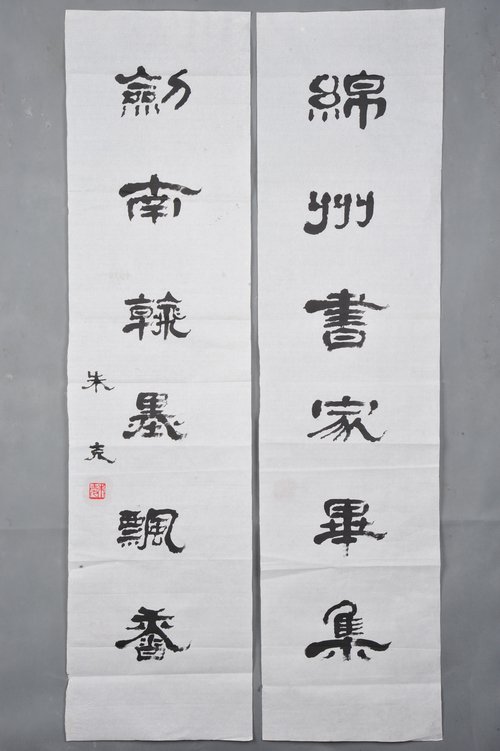 綿州書家畢集
劍南翰墨飄香
朱克